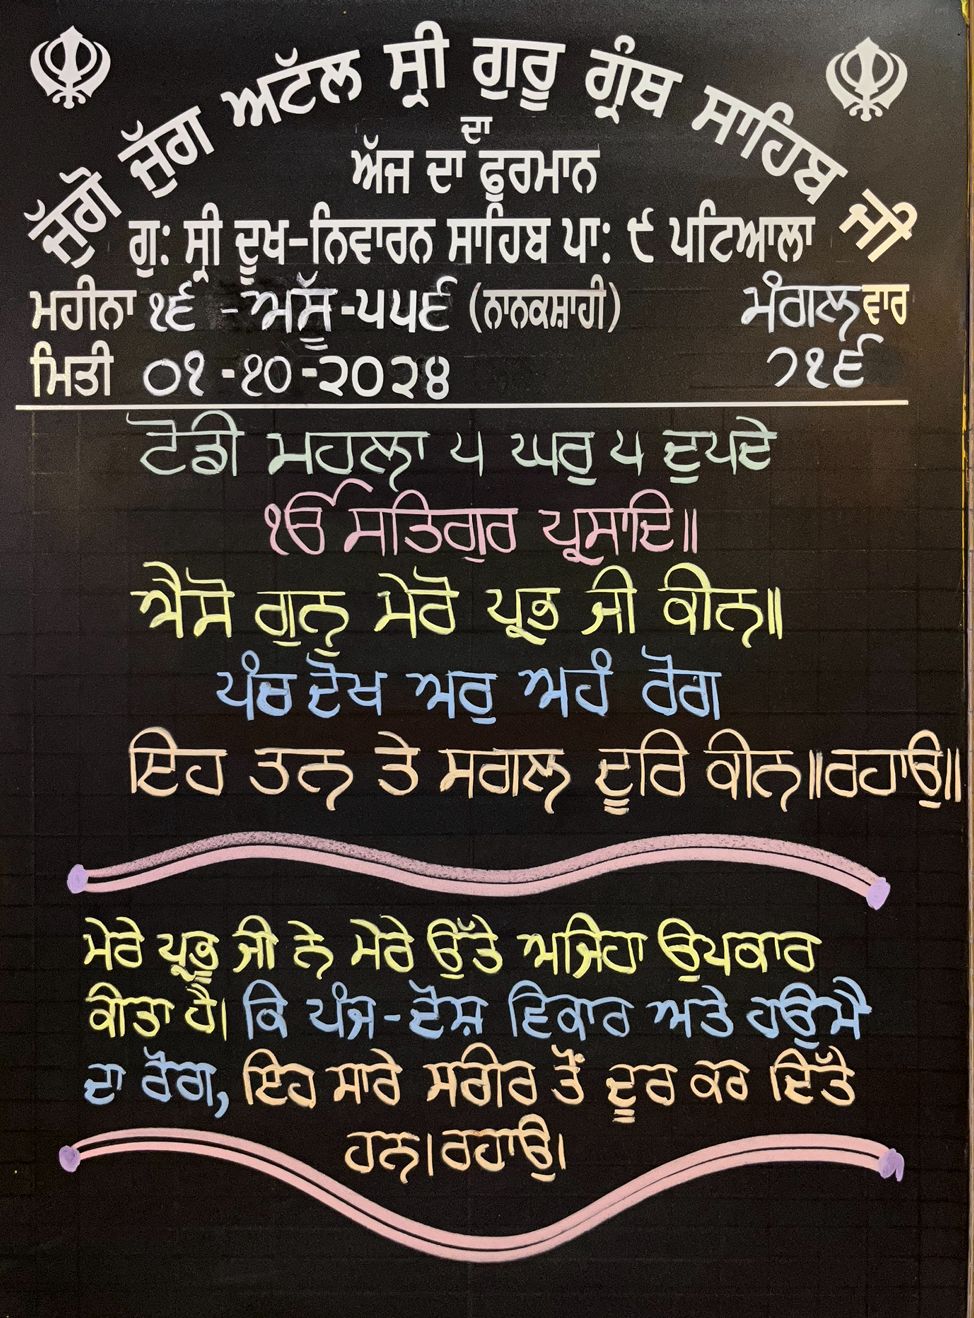 ਜੁੱਗੋ ਜੁੱਗ ਅਟੱਲ ਸ੍ਰੀ ਗੁਰੂ ਗ੍ਰੰਥ ਸਾਹਿਬ ਜੀ
ਦਾ
ਅੱਜ ਦਾ ਫੁਰਮਾਨ
ਗੁ: ਸ੍ਰੀ ਦੂਖ-ਨਿਵਾਰਨ ਸਾਹਿਬ ਪਾ: ੯ ਪਟਿਆਲਾ
ਮਹੀਨਾ ੧੬ - ਅਸੂੱ - ੫੫੬ (ਨਾਨਕਸ਼ਾਹੀ) ਮੰਗਲਵਾਰ
ਮਿਤੀ ੦੧ - ੧੦ - ੨੦੨੪ ੭੧੬
ਟੋਡੀ ਮਹਲਾ ੫ ਘਰੁ ੫ ਦੁਪਦੇ
ੴ ਸਤਿਗੁਰ ਪ੍ਰਸਾਦਿ॥
ਐਸੋ ਗੁਨੁ ਮੇਰੋ ਪ੍ਰਭ ਜੀ ਕੀਨ॥
ਪੰਚ ਦੋਖ ਅਰੁ ਅਹੰ ਰੋਗ
ਇਹ ਤਨ ਤੇ ਸਗਲ ਦੂਰਿ ਕੀਨ॥ਰਹਾਉ॥
ਮੇਰੇ ਪ੍ਰਭੂ ਜੀ ਨੇ ਮੇਰੇ ਉੱਤੇ ਅਜਿਹਾ ਉਪਕਾਰ
ਕੀਤਾ ਹੈ। ਕਿ ਪੰਜ-ਦੋਸ਼ ਵਿਕਾਰ ਅਤੇ ਹਉਮੈ
ਦਾ ਰੋਗ, ਇਹ ਸਾਰੇ ਸਰੀਰ ਤੋਂ ਦੂਰ ਕਰ ਦਿੱਤੇ
ਹਨ।ਰਹਾਉ।